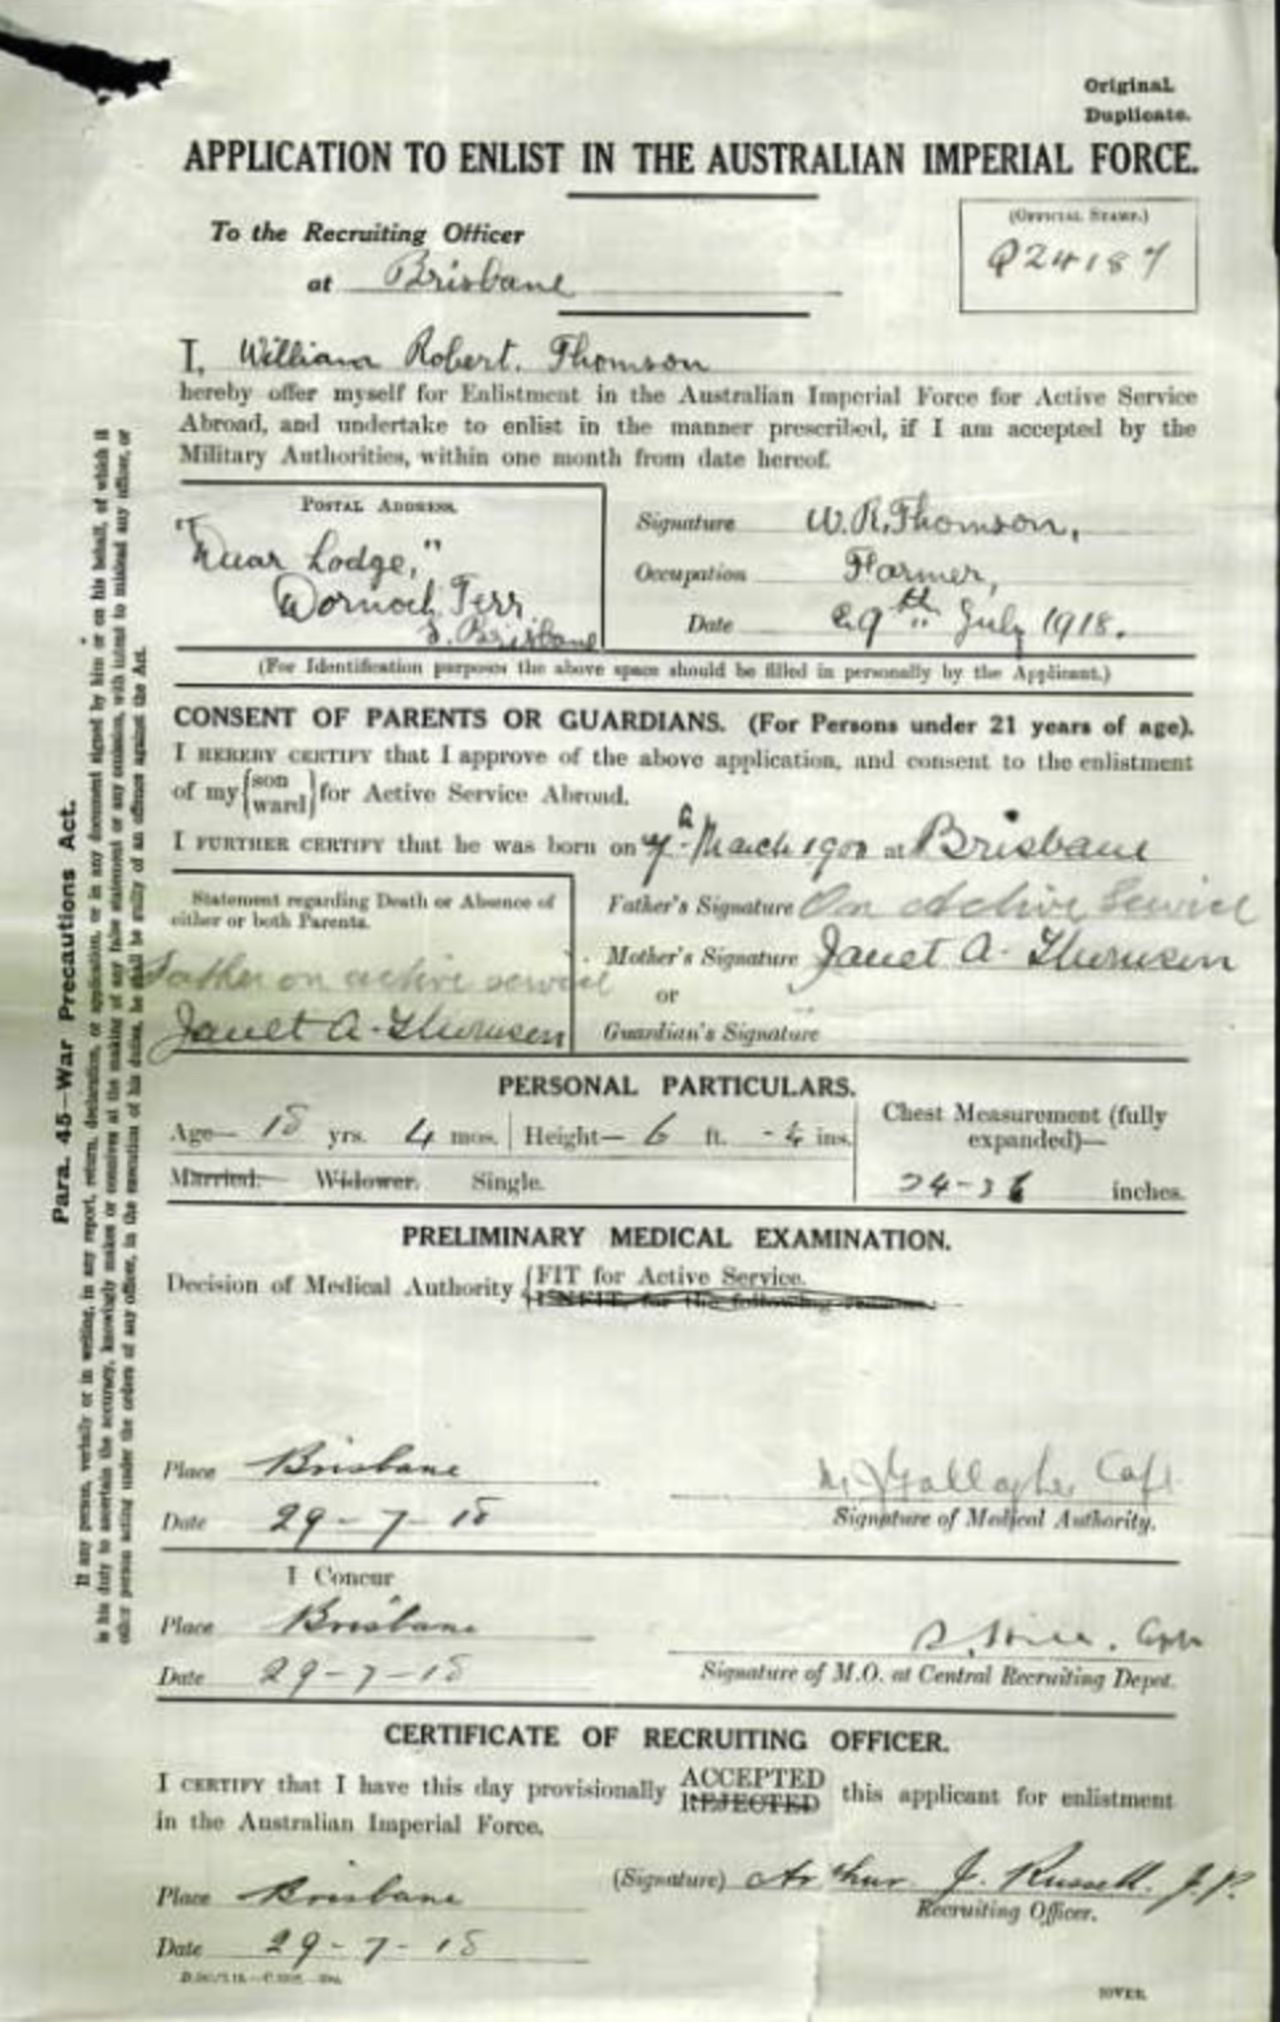 Original.
Duplicate.
APPLICATION TO ENLIST IN THE AUSTRALIAN IMPERIAL FORCE.
To the Recruiting Officer
at Brisbane
(OFFICIAL STAMP.)
Q24187
I, William Robert. Thomson
hereby offer myself for Enlistment in the Australian Imperial Force for Active Service
Abroad, and undertake to enlist in the manner prescribed, if I am accepted by the
Military Authorities, within one month from date hereof.
POSTAL ADDRESS.
Lodge,"
Dornoch Terr
S. Brisbane
Signature W.R.Thomson,
Occupation Farmer,
Date 29th July 1918.
(For Identification purposes the above space should be filled in personally by the Applicant.)
CONSENT OF PARENTS OR GUARDIANS. (For Persons under 21 years of age).
I HEREBY CERTIFY that I approve of the above application, and consent to the enlistment
of my {son ward} for Active Service Abroad.
I FURTHER CERTIFY that he was born on 7th March 1900 at Brisbane
Statement regarding Death or Absence of
either or both Parents.
Father on active service
Janet A. Thomson
Father's Signature On Active Service
Mother's Signature Janet A. Thomson
or
Guardian's Signature
PERSONAL PARTICULARS.
Age— 18 yrs. 4 mos. Height— 6 ft. - ins.
Chest Measurement (fully
expanded)—
Married. Widower. Single.
34-36 inches.
PRELIMINARY MEDICAL EXAMINATION.
Decision of Medical Authority {FIT for Active Service.
UNFIT for the following reasons:
Place Brisbane
Date 29-7-18
Gallagher Capt
Signature of Medical Authority.
I Concur
Place Brisbane
Date 29-7-18
Capt
Signature of M.O. at Central Recruiting Depot.
CERTIFICATE OF RECRUITING OFFICER.
I CERTIFY that I have this day provisionally ACCEPTED REJECTED this applicant for enlistment
in the Australian Imperial Force.
Place Brisbane
Date 29-7-18
(Signature) Arthur J. Russell. J.P.
Recruiting Officer.
[OVER.
Para. 45—War Precautions Act.
If any person, verbally or in writing, in any report, return, declaration, or application, or in any document signed by him or on his behalf, of which it
is his duty to ascertain the accuracy, knowingly makes or connives at the making of any false statement or any omission, with intent to mislead any officer, or
other person acting under the orders of any officer, in the execution of his duties, he shall be guilty of an offence against the Act.